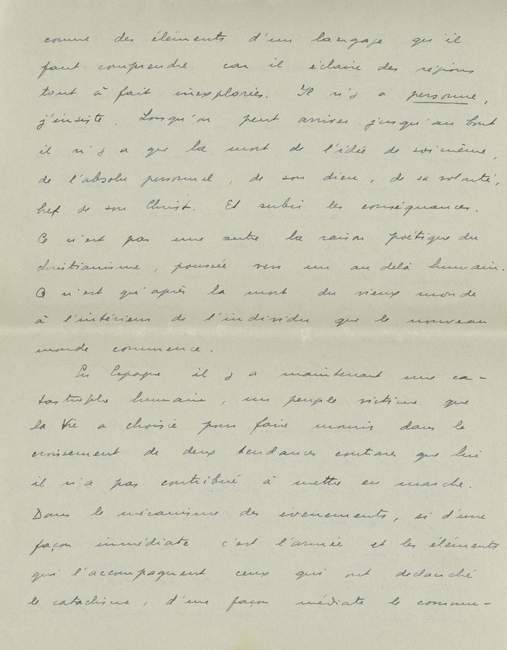 comme des éléments d'un langage qu'il
faut comprendre car il éclaire des régions
tout à fait inexplorées. Il n'y a personne,
j'insiste. Lorsqu'on peut arriver jusqu'au bout
il n'y a que la mort de l'idée de soi même,
de l'absolu personnel, de son dieu, de sa volonté,
bref de son Christ. Et subir les conséquances.
Ce n'est pas une autre la raison poétique du
christianisme, poussée vers un au delà humain.
Ce n'est qu'après la mort du vieux monde
à l'intérieur de l'individu que le nouveau
monde commence.
En Espagne il y a maintenant une ca-
tastrophe humaine, un peuple victime que
la Vie a choisie pour faire mourir dans le
croisement de deux tendances contraires que lui
il n'a pas contribué à mettre en marche.
Dans le mécanisme des evenements, si d'une
façon immédiate c'est l'armée et les éléments
qui l'accompagnent ceux qui ont declanché
le cataclisme, d'une façon médiate le commu-